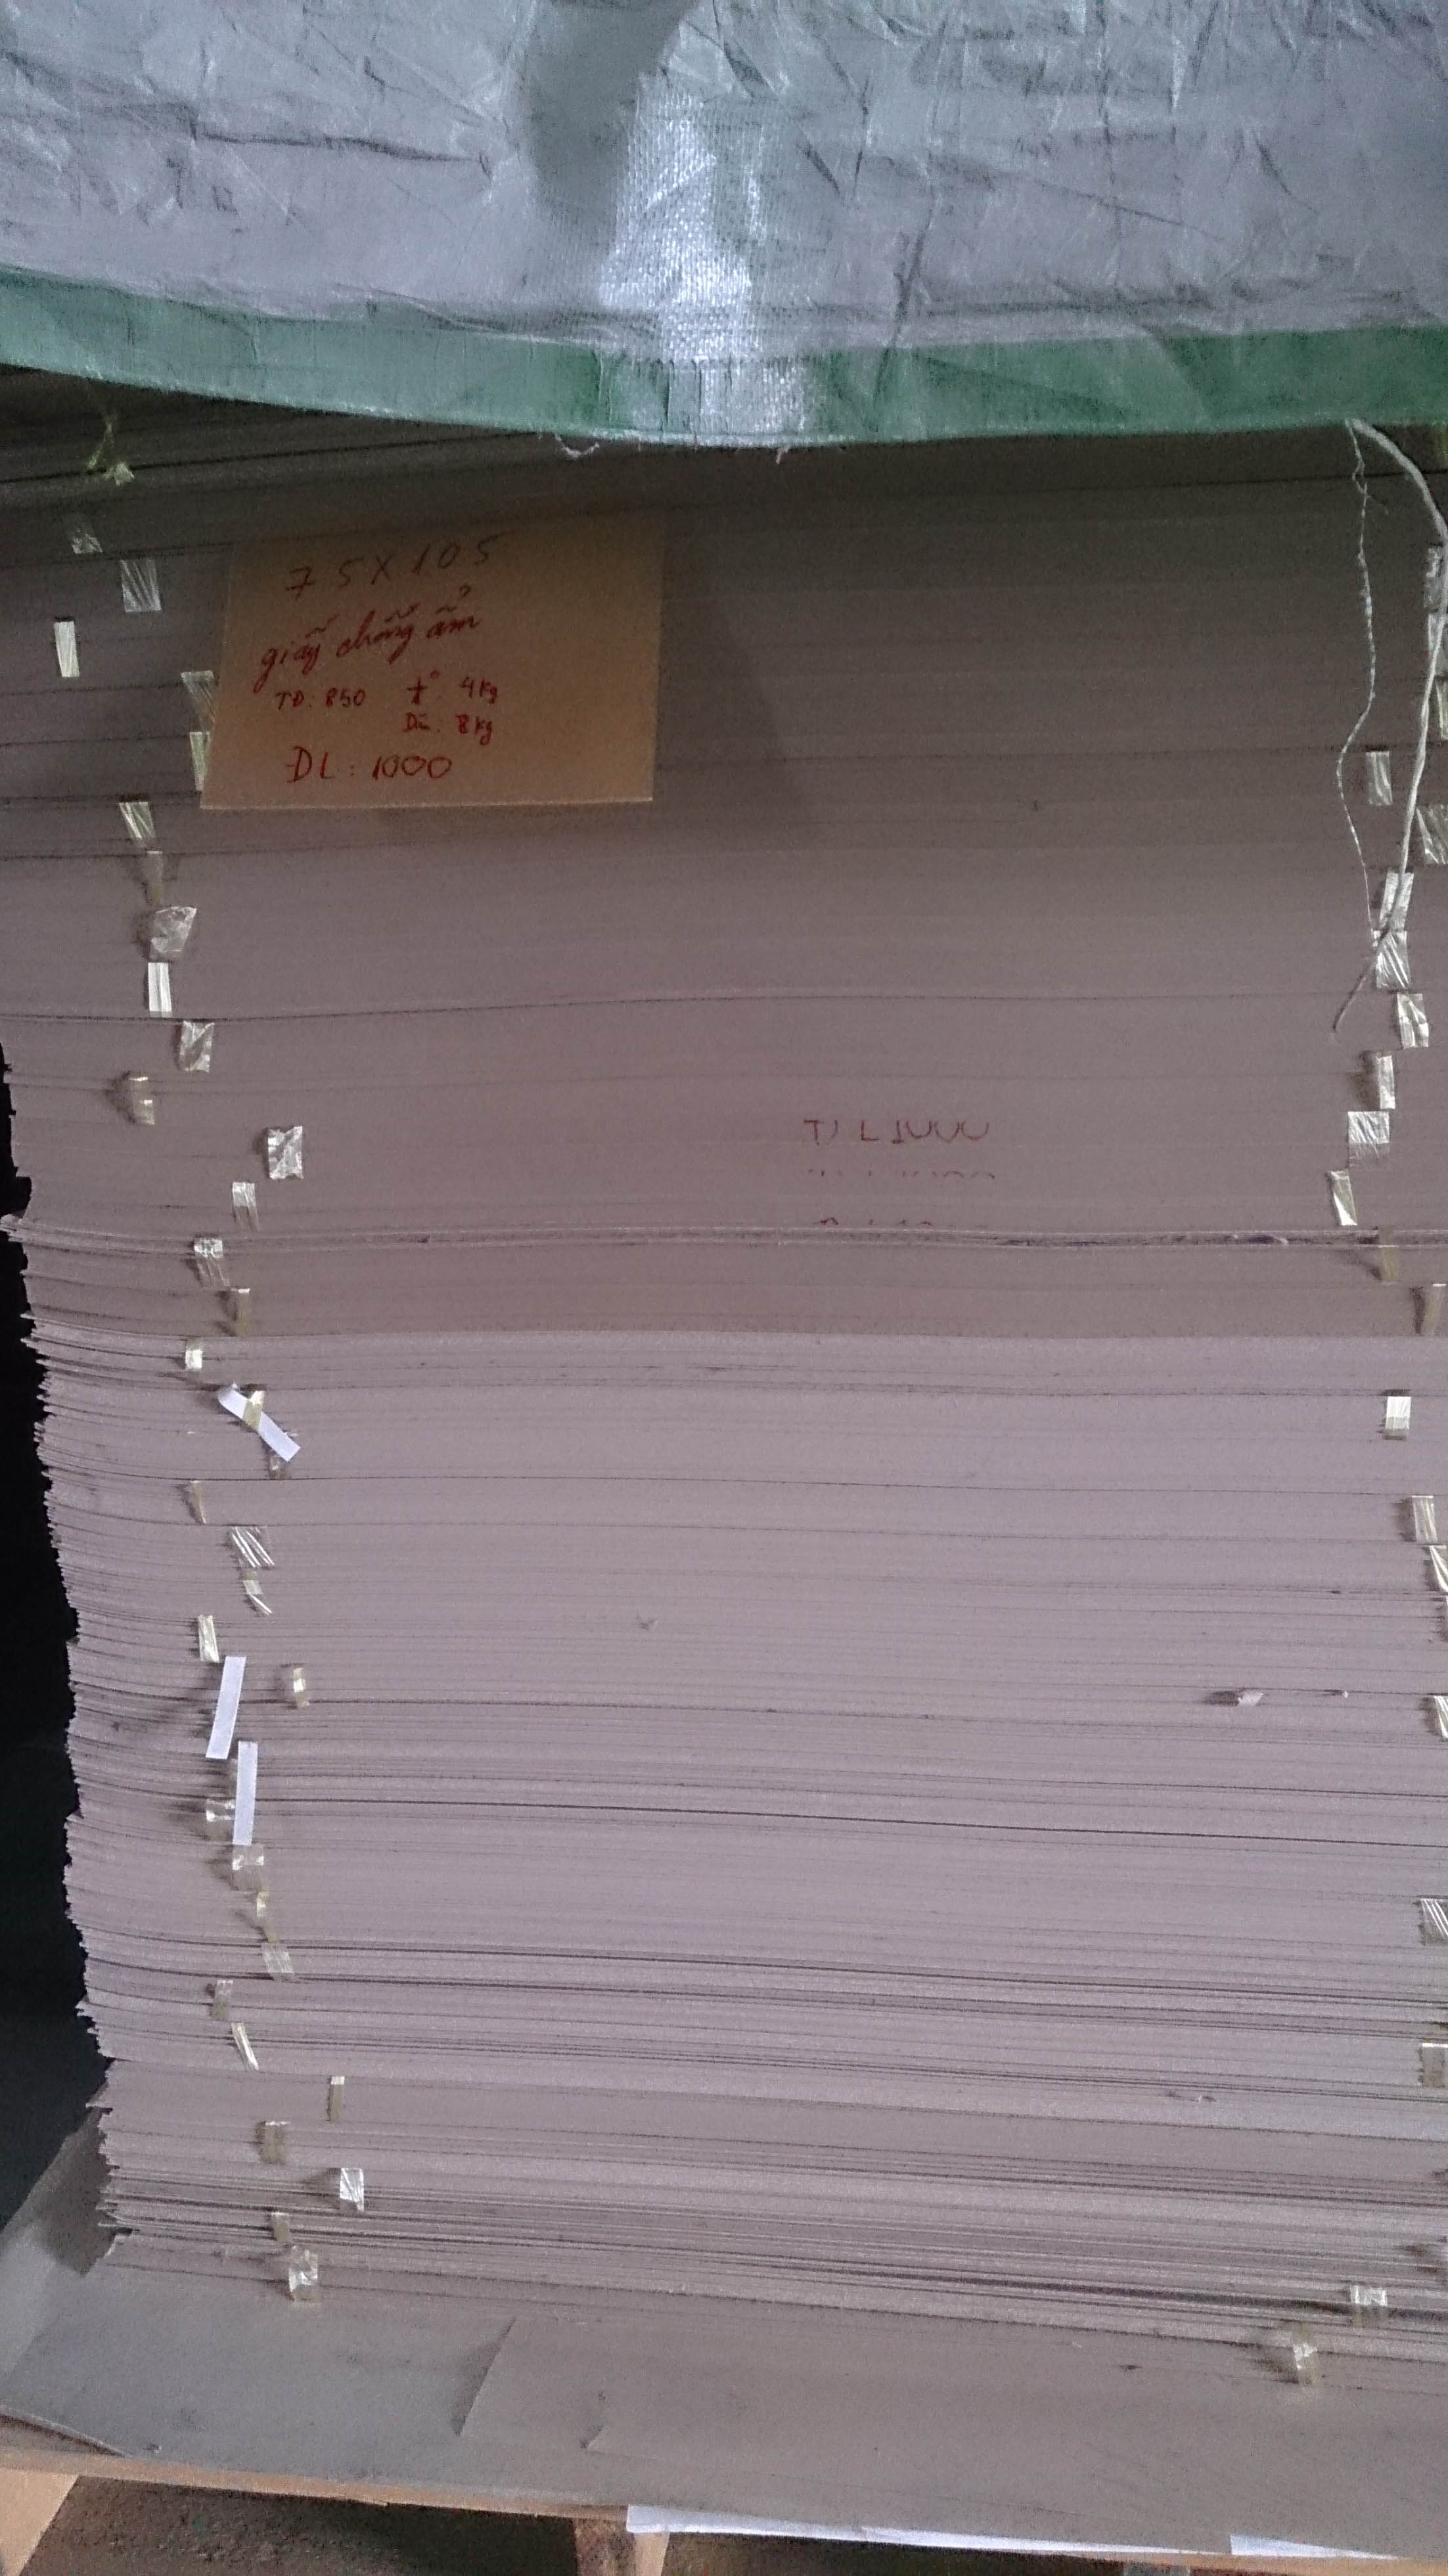 75X105
giấy chống ẩm
TĐ: 850 t°: 4kg
8kg
ĐL: 1000
ĐL 1000